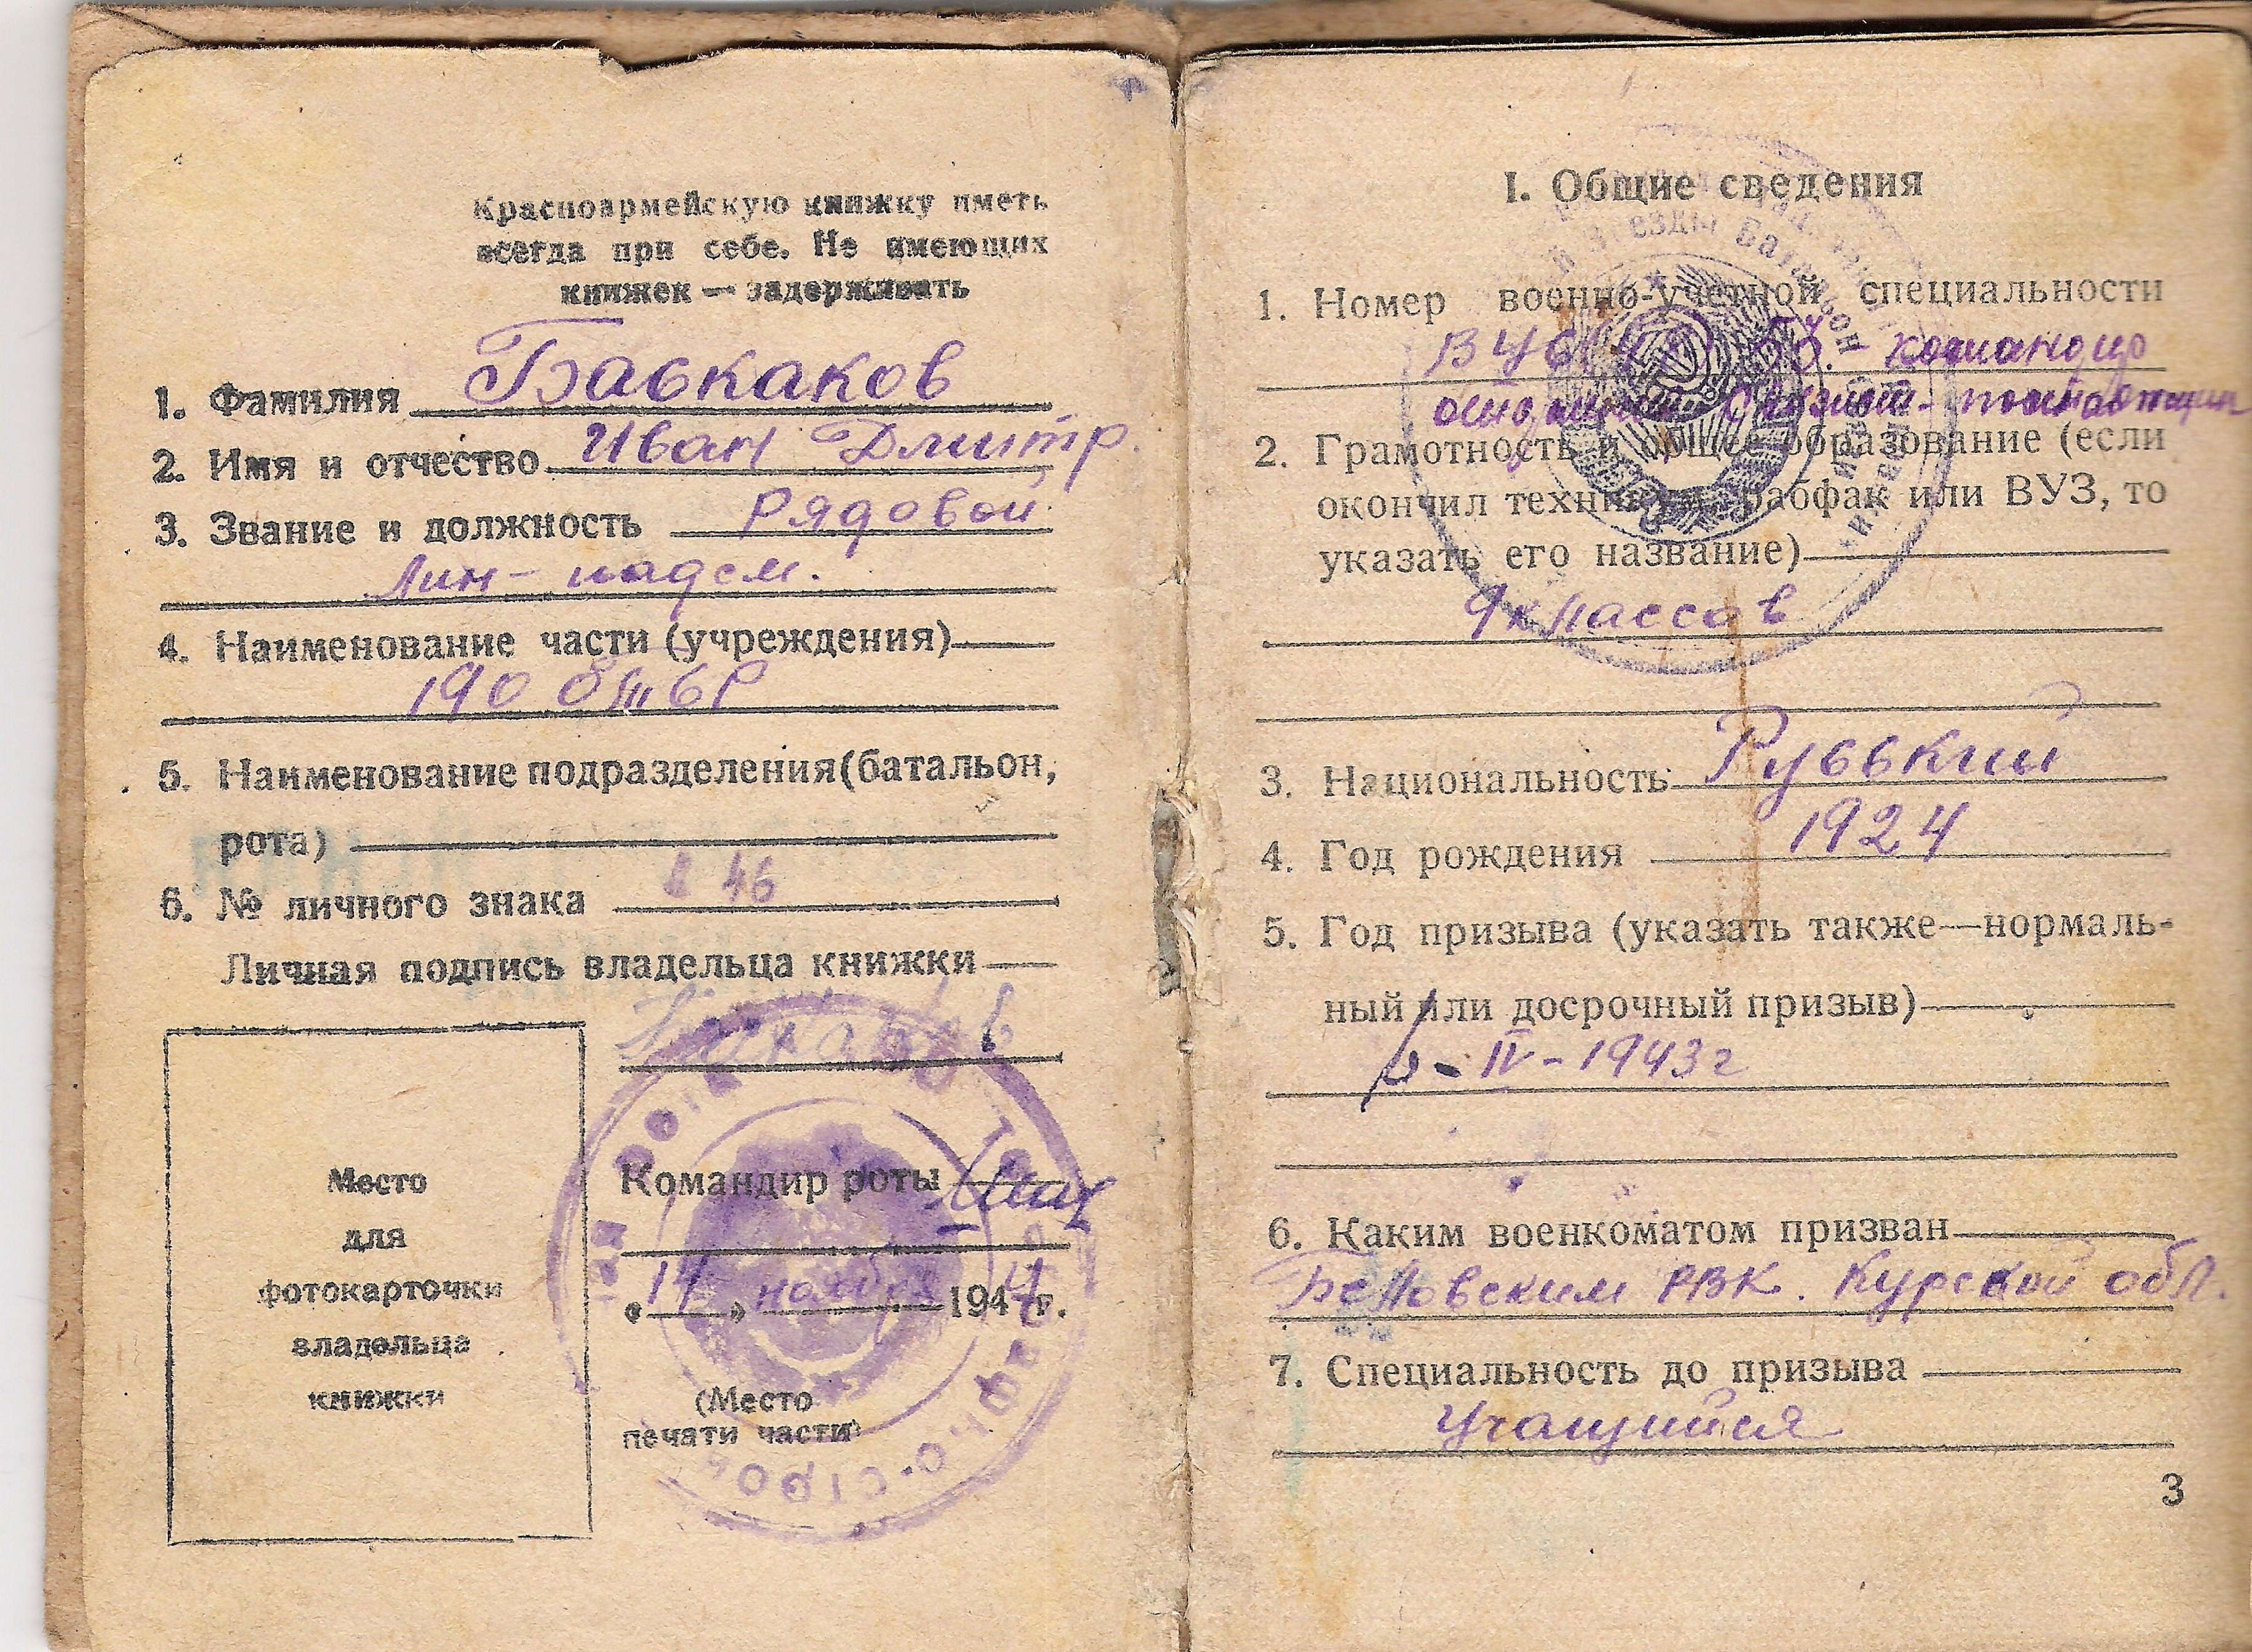 Красноармейскую книжку иметь
всегда при себе. Не имеющих
книжек — задерживать
1. Фамилия Баскаков
2. Имя и отчество Иван Дмитр.
3. Звание и должность Рядовой
Лин-надсм.
4. Наименование части (учреждения)
190
5. Наименование подразделения (батальон,
рота)
6. № личного знака
Личная подпись владельца книжки
Место
для
фотокарточки
владельца
книжки
Командир роты
«14» ноября 1944 г.
(Место
печати части)
I. Общие сведения
Звезды Батальон
1. Номер военно-учетной специальности
командир
2. Грамотность и общее образование (если
окончил техникум, рабфак или ВУЗ, то
указать его название)
9 классов
3. Национальность Русский
4. Год рождения 1924
5. Год призыва (указать также—нормаль-
ный или досрочный призыв)
IV-1943г
6. Каким военкоматом призван
Беловским РВК. Курской обл.
7. Специальность до призыва
Учащийся
3